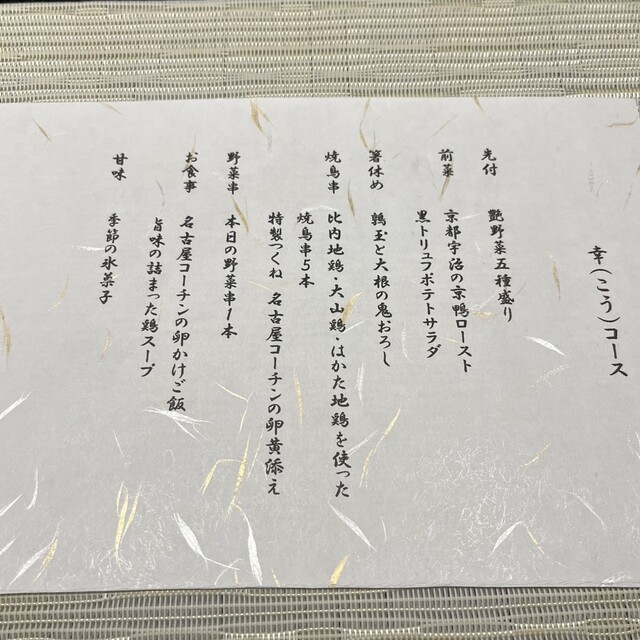 幸(こう)コース
先付 艶野菜五種盛り
前菜 京都宇治の京鴨ロースト
黒トリュフポテトサラダ
箸休め 鶉玉と大根の鬼おろし
焼鳥串 比内地鶏・大山鶏・はかた地鶏を使った
焼鳥串5本
特製つくね 名古屋コーチンの卵黄添え
野菜串 本日の野菜串1本
お食事 名古屋コーチンの卵かけご飯
旨味の詰まった鶏スープ
甘味 季節の氷菓子